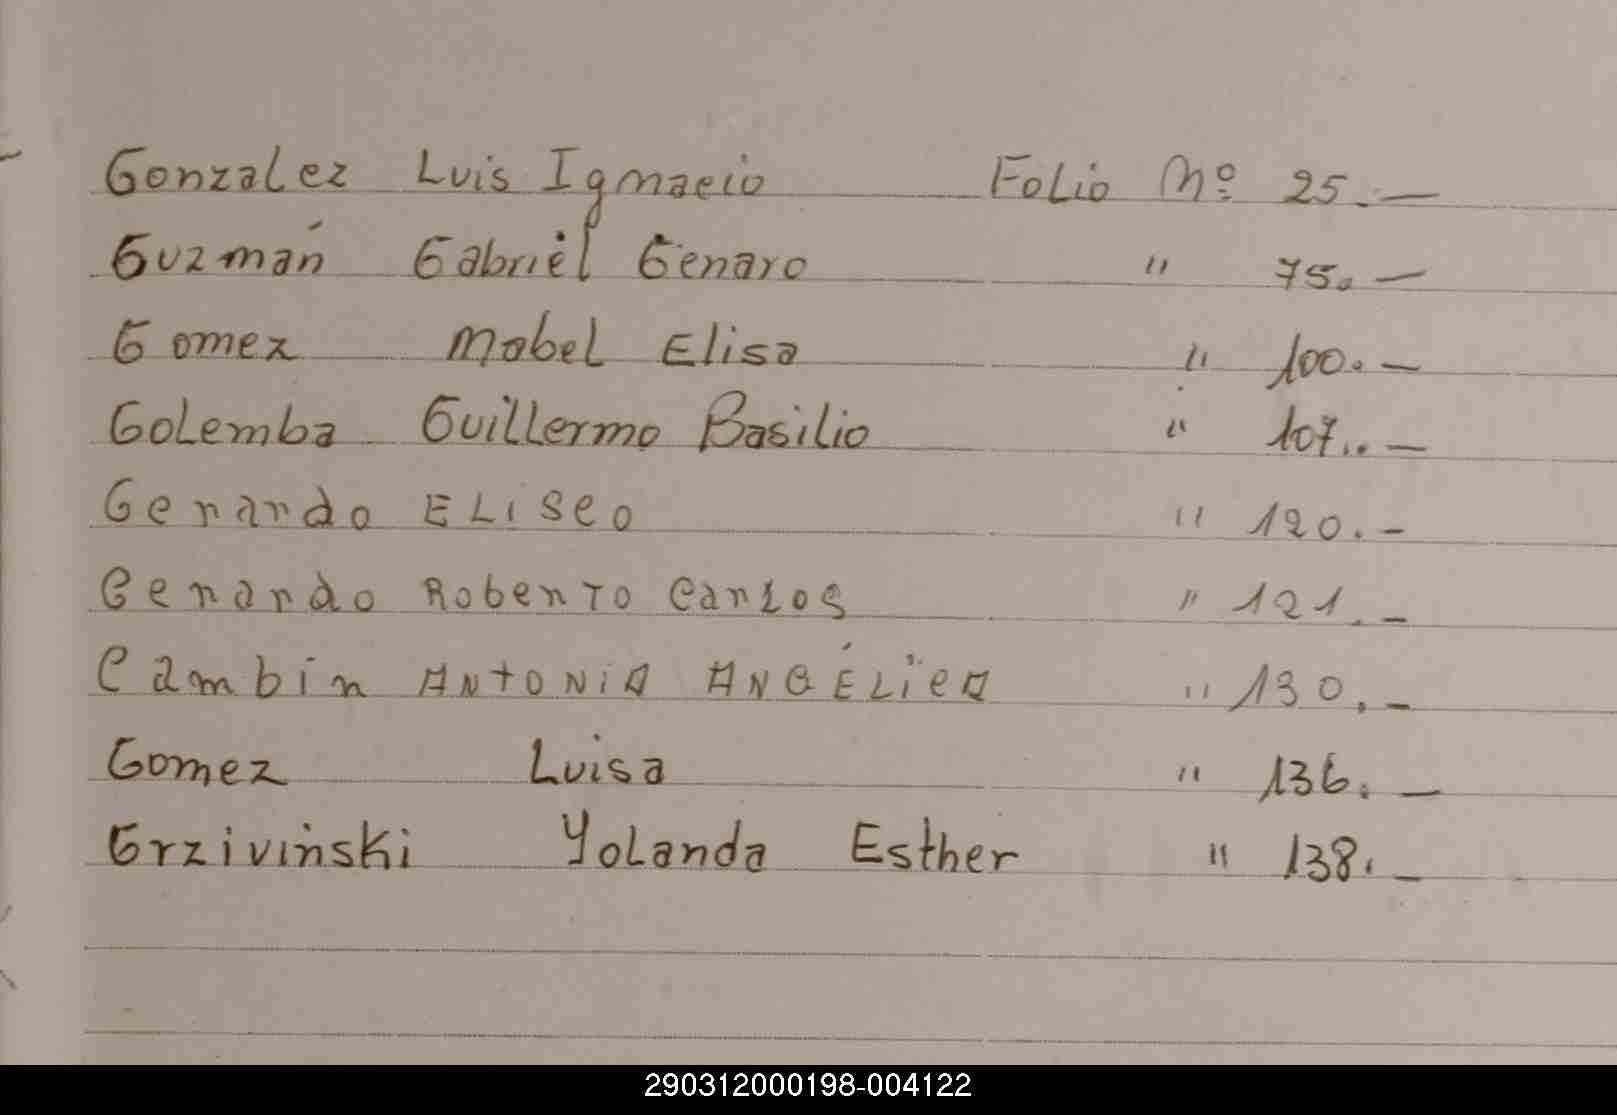 Gonzalez Luis Ignacio Folio Nº 25.—
Guzmán Gabriel Genaro " 75.—
Gomez Mabel Elisa " 100.—
Golemba Guillermo Basilio " 107..—
Gerardo ELISeO " 120.-
Gerardo RoberTO Carlos " 121.-
Cambin ANtONiA ANGÉLicA " 130.-
Gomez Luisa " 136.—
Grzivinski Yolanda Esther " 138.-
290312000198-004122